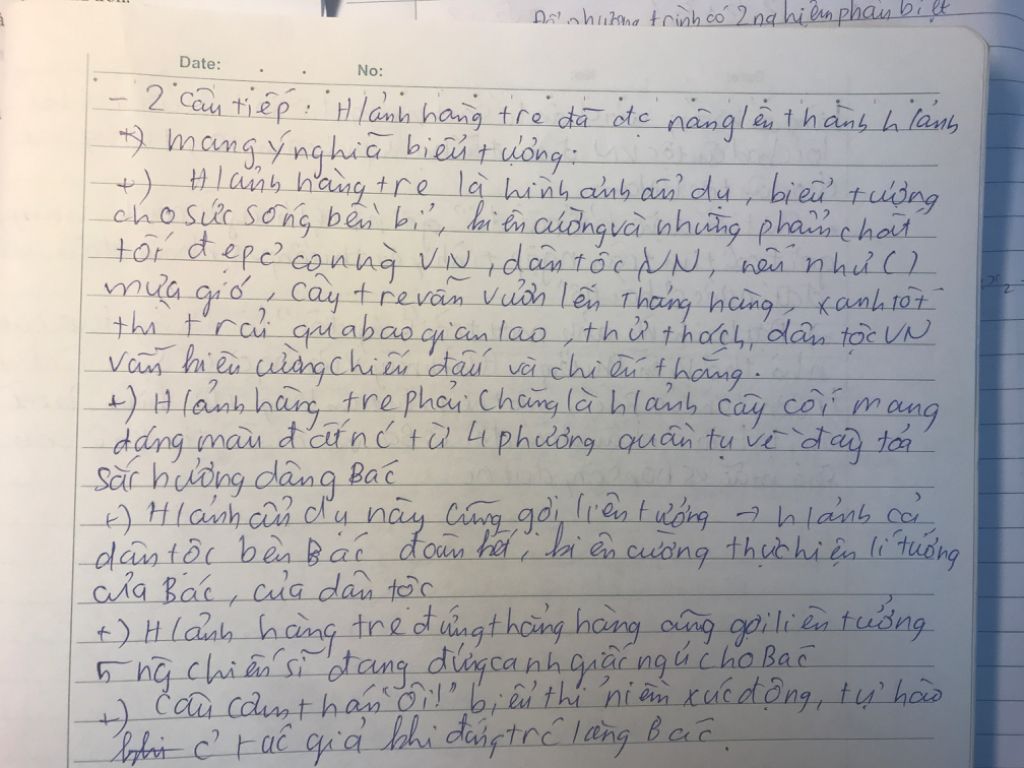 Đối phương trình có 2 nghiệm phân biệt
Date: . . No:
- 2 câu tiếp: Hả̉nh hàng tre đã đc nâng lên thành hảnh
+) mang ý nghĩa biểu tượng:
+) H/ảnh hàng tre là hình ảnh ẩn dụ, biểu tượng
cho sức sống bền bỉ, kiên cường và những phẩm chất
tốt đẹp c̉ con ng VN, dân tộc VN, nếu như ( )
mưa gió, cây tre vẫn vươn lên thẳng hàng, xanh tốt
thì trải qua bao gian lao, thử thách, dân tộc VN
vẫn kiên cường chiến đấu và chiến thắng.
+) H/ảnh hàng tre phải chăng là h/ảnh cây cối mang
dáng màu đất nc từ 4 phương quần tụ về đây toả
sắc hương dâng Bác
+) H/ảnh ẩn dụ này cũng gợi liên tưởng → h/ảnh cả
dân tộc bên Bác đoàn kết, kiên cường thực hiện lí tưởng
của Bác, của dân tộc
+) H/ảnh hàng tre đứng thẳng hàng cũng gợi liên tưởng
~ ng chiến sĩ đang đứng canh giấc ngủ cho Bác
+) Câu cảm thán "ôi!" biểu thị niềm xúc động, tự hào
c̉ tác giả khi đứng trc lăng Bác.